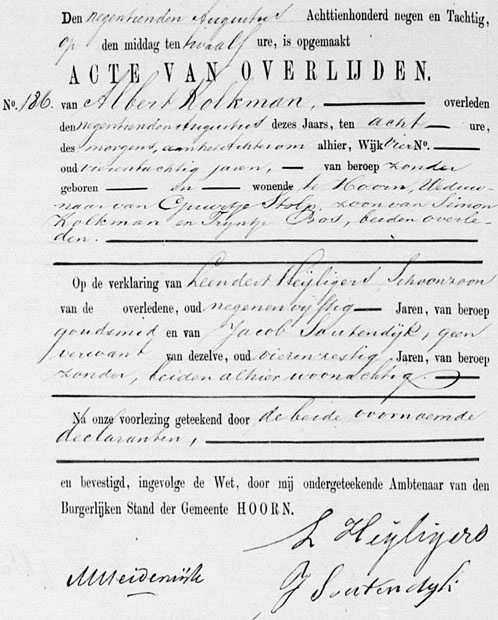 Den negentienden Augustus Achttienhonderd negen en Tachtig,
op den middag ten twaalf ure, is opgemaakt
ACTE VAN OVERLIJDEN.
No. 186. van Albert Kolkman, overleden
den negentienden Augustus dezes Jaars, ten acht ure,
des morgens, aan het Achterom alhier, Wijk vier No.
oud vierentachtig jaren, van beroep zonder
geboren en wonende te Hoorn, Weduw-
naar van Stolp, zoon van Simon
Kolkman en Trijntje Bos, beiden overle-
den.
Op de verklaring van Leendert Heijligers Schoonzoon
van de overledene, oud negenenvijftig Jaren, van beroep
goudsmid en van Jacob Soutendijk, geen
verwant van dezelve, oud vierenzestig Jaren, van beroep
zonder, beiden alhier woonachtig.
Na onze voorlezing geteekend door de beide voornoemde
declaranten,
en bevestigd, ingevolge de Wet, door mij ondergeteekende Ambtenaar van den
Burgerlijken Stand der Gemeente HOORN.
L Heyligers
J Soutendijk